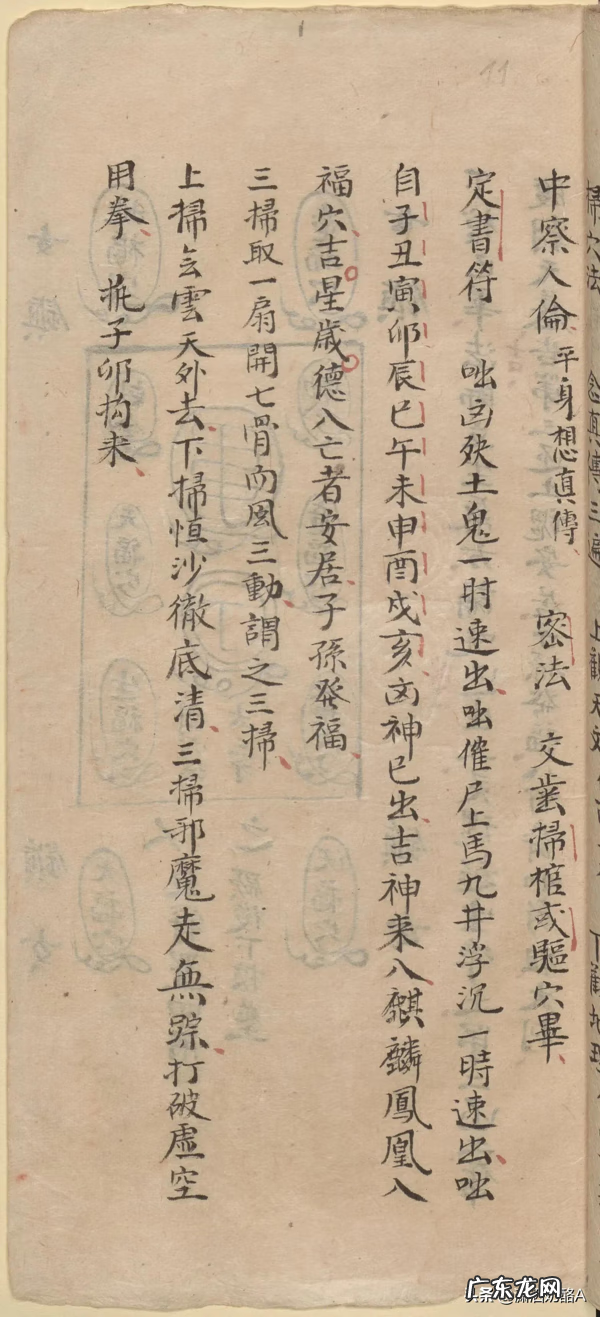 掃穴法 念真傳三遍 上觀天文
中察人倫 平身想真傳 密法 交歯掃棺或驅穴畢
定書符 咄凶殃土鬼一时速出咄催尸上馬九井浮沉一時速出咄
自子丑寅卯辰巳午未申酉戌亥凶神已出吉神来八麒麟鳳凰八
福穴吉星歲德八亡者安居子孫發福
三掃取一扇開七骨而風三動謂之三掃
上掃去雲天外去下掃恒沙徹底清三掃邪魔走無踪打破虛空
用拳 子卯拘来
11
广东龙网